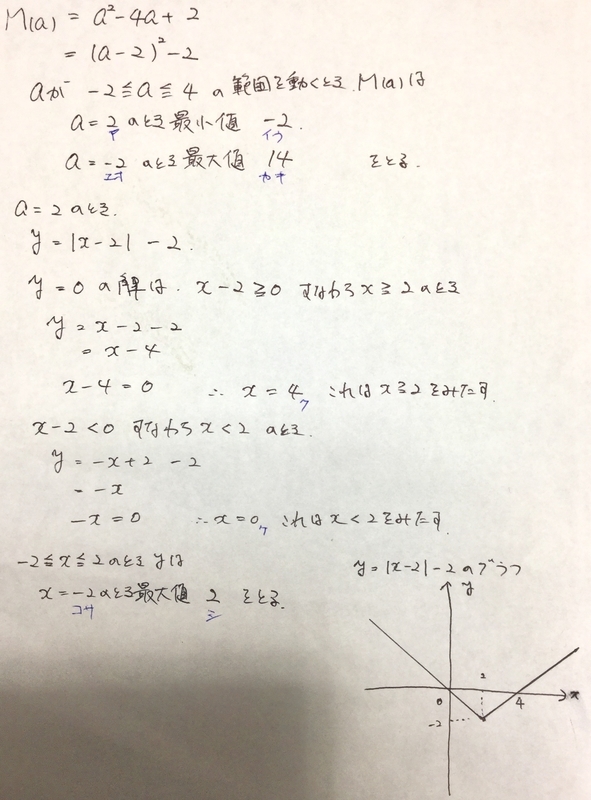 M(a) = a² - 4a + 2
= (a - 2)² - 2
aが -2 ≦ a ≦ 4 の範囲を動くとき、M(a)は
a = 2 のとき最小値 -2.
ア イウ
a = -2 のとき最大値 14 をとる.
エオ カキ
a = 2 のとき.
y = |x - 2| - 2.
y = 0 の解は、x - 2 ≧ 0 すなわち x ≧ 2 のとき
y = x - 2 - 2
= x - 4
x - 4 = 0 ∴ x = 4 これは x ≧ 2 をみたす.
ク
x - 2 < 0 すなわち x < 2 のとき.
y = -x + 2 - 2
= -x
-x = 0 ∴ x = 0 これは x < 2 をみたす.
-2 ≦ x ≦ 2 のとき y は
x = -2 のとき最大値 2 をとる.
コサ シ
y = |x - 2| - 2 のグラフ
y
2
0 4 x
-2